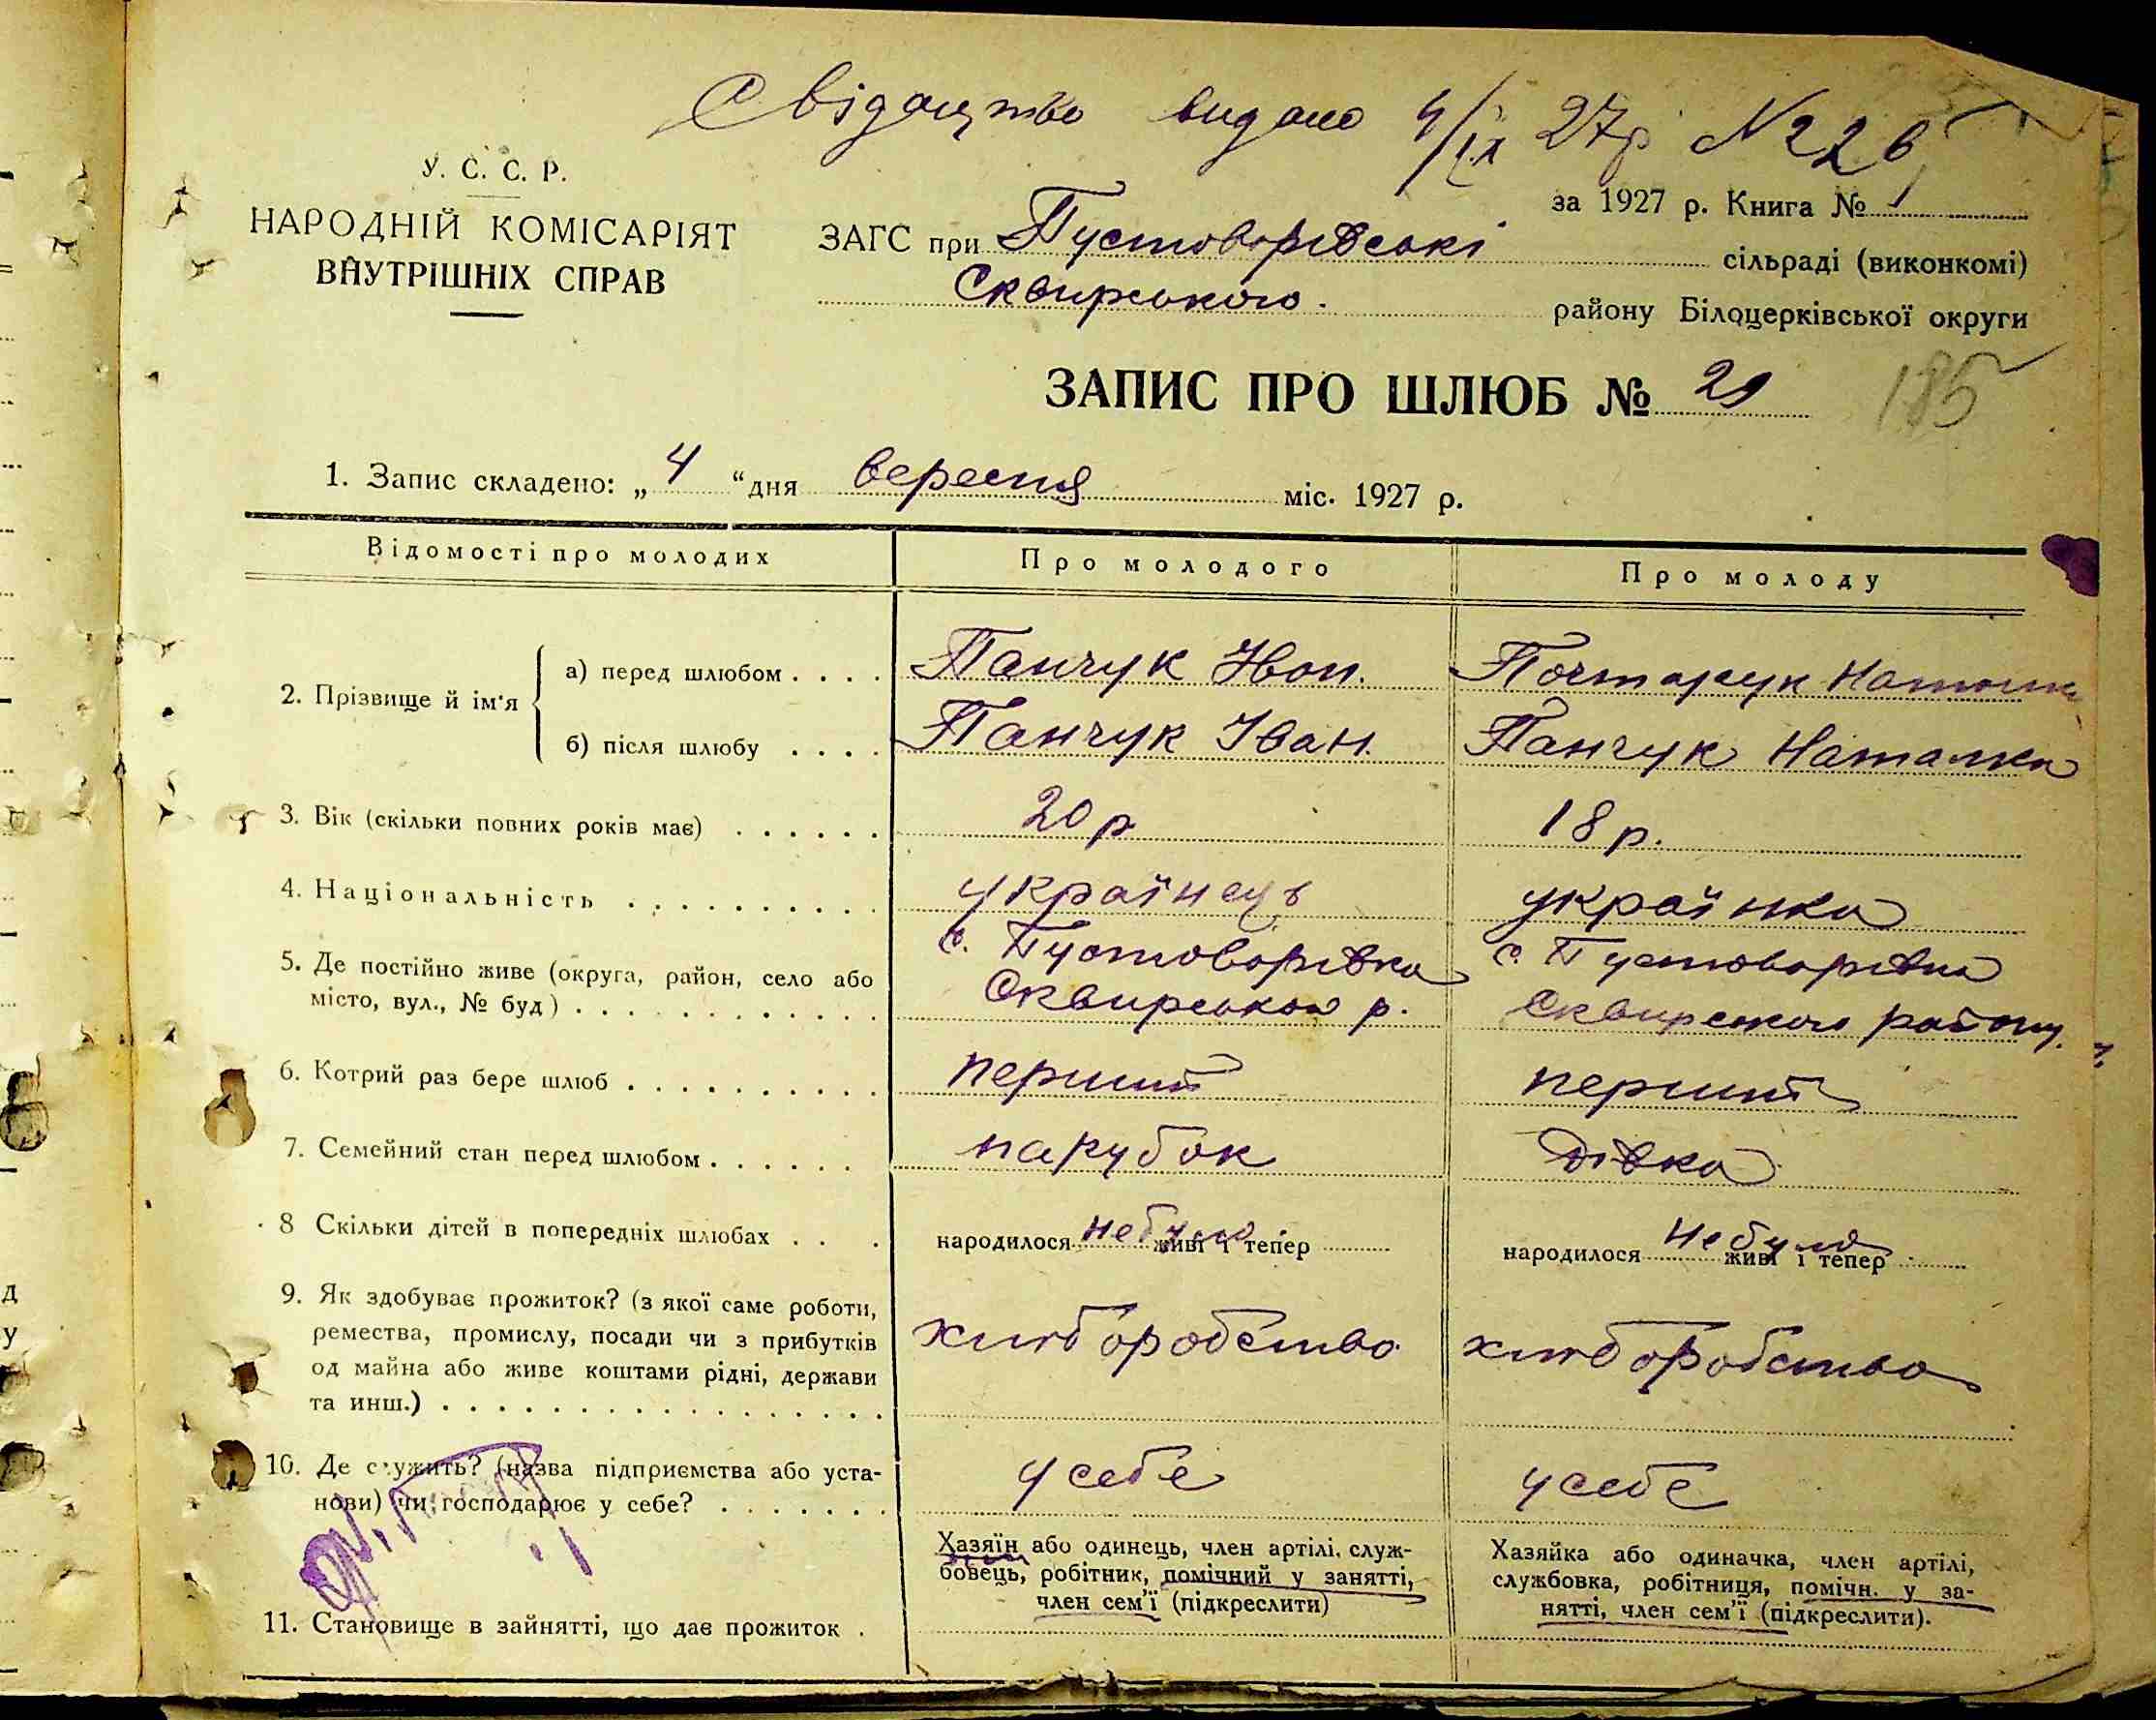 Свідоцтво видано 4/ІХ 27р №226
У. С. С. Р.
НАРОДНІЙ КОМІСАРІЯТ
ВНУТРІШНІХ СПРАВ
за 1927 р. Книга № 1
ЗАГС при Пустоворівські сільраді (виконкомі)
Сквирського. району Білоцерківської округи
ЗАПИС ПРО ШЛЮБ №
185
1. Запис складено: „ 4 “ дня вересня міс. 1927 р.
Відомості про молодих Про молодого Про молоду
2. Прізвище й ім'я
а) перед шлюбом . . . . Панчук Іван. Почтарук Наталка
б) після шлюбу . . . . Панчук Іван. Панчук Наталка
3. Вік (скільки повних років має) . . . . . . 20 р 18 р.
4. Національність . . . . . . . . . . українець українка
5. Де постійно живе (округа, район, село або с. Пустоворівка с. Пустоворівка
місто, вул., № буд) . . . . . . . . . . . . Сквирського р. Сквирського району.
6. Котрий раз бере шлюб . . . . . . . . . . перший перший
7. Семейний стан перед шлюбом . . . . . . парубок дівка
8 Скільки дітей в попередніх шлюбах . . . народилося небуло живі і тепер народилося небуло живі і тепер
9. Як здобуває прожиток? (з якої саме роботи,
ремества, промислу, посади чи з прибутків хліборобство хліборобство
од майна або живе коштами рідні, держави
та инш.) . . . . . . . . . . . . . . . . .
10. Де служить? (назва підприємства або уста- у себе у себе
нови) чи господарює у себе? . . . . . . .
Хазяїн або одинець, член артілі, служ- Хазяйка або одиначка, член артілі,
бовець, робітник, помічний у занятті, службовка, робітниця, помічн. у за-
член сем'ї (підкреслити) нятті, член сем'ї (підкреслити).
11. Становище в зайнятті, що дає прожиток .